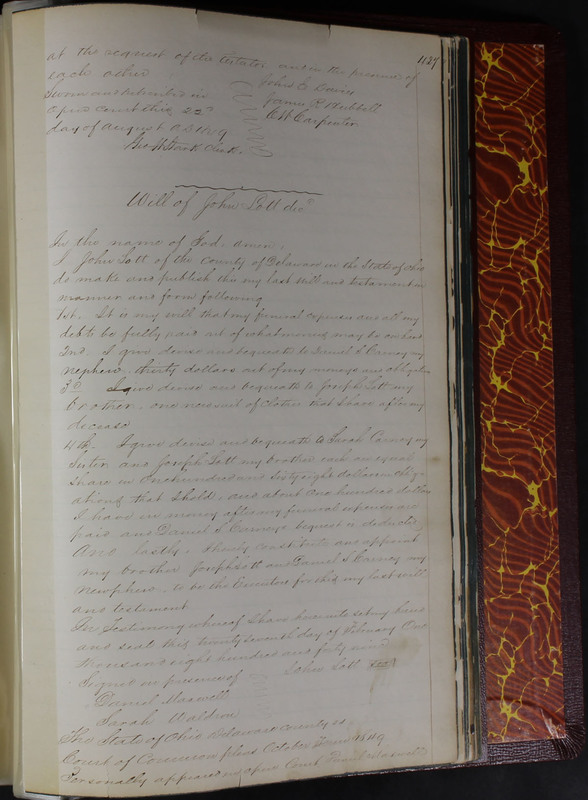 427
at the request of the testator and in the presence of
each other
John S. Davis
Sworn and subscribed in
James R Hubbell
open court this 22d
C H Carpenter
day of August AD 1849
Geo W Clerk.
Will of John Lott decd
In the name of God. Amen.
I John Lott of the county of Delaware in the State of Ohio
do make and publish this my last will and testament in
manner and form following
1st. It is my will that my funeral expenses and all my
debts be fully paid out of what money may be on hand
2nd. I give devise and bequeath to Daniel S Carney my
nephew. thirty dollars out of my moneys and obligations
3d I give devise and bequeath to Joseph Lott my
brother. one new suit of clothes that I have after my
decease
4th. I give devise and bequeath to Sarah Carney my
sister and Joseph Lott my brother each an equal
share in one hundred and sixty eight dollars in oblig
ations that I hold, and about one hundred dollars
I have in money after my funeral expenses are
paid and Daniel S Carneys bequest is deducted
And lastly. I hereby constitute and appoint
my brother Joseph Lott and Daniel S Carney my
newphew. to be the Executors for this my last will
and testament
In Testimony whereof I have hereunto set my hand
and seal this twenty seventh day of February One
thousand eight hundred and forty nine
Signed in presence of John Lott seal
Daniel Maxwell
Sarah Waldron
The State of Ohio Delaware County ss.
Court of Common pleas October Term 1849
Personally appeared in open Court Daniel Maxwell